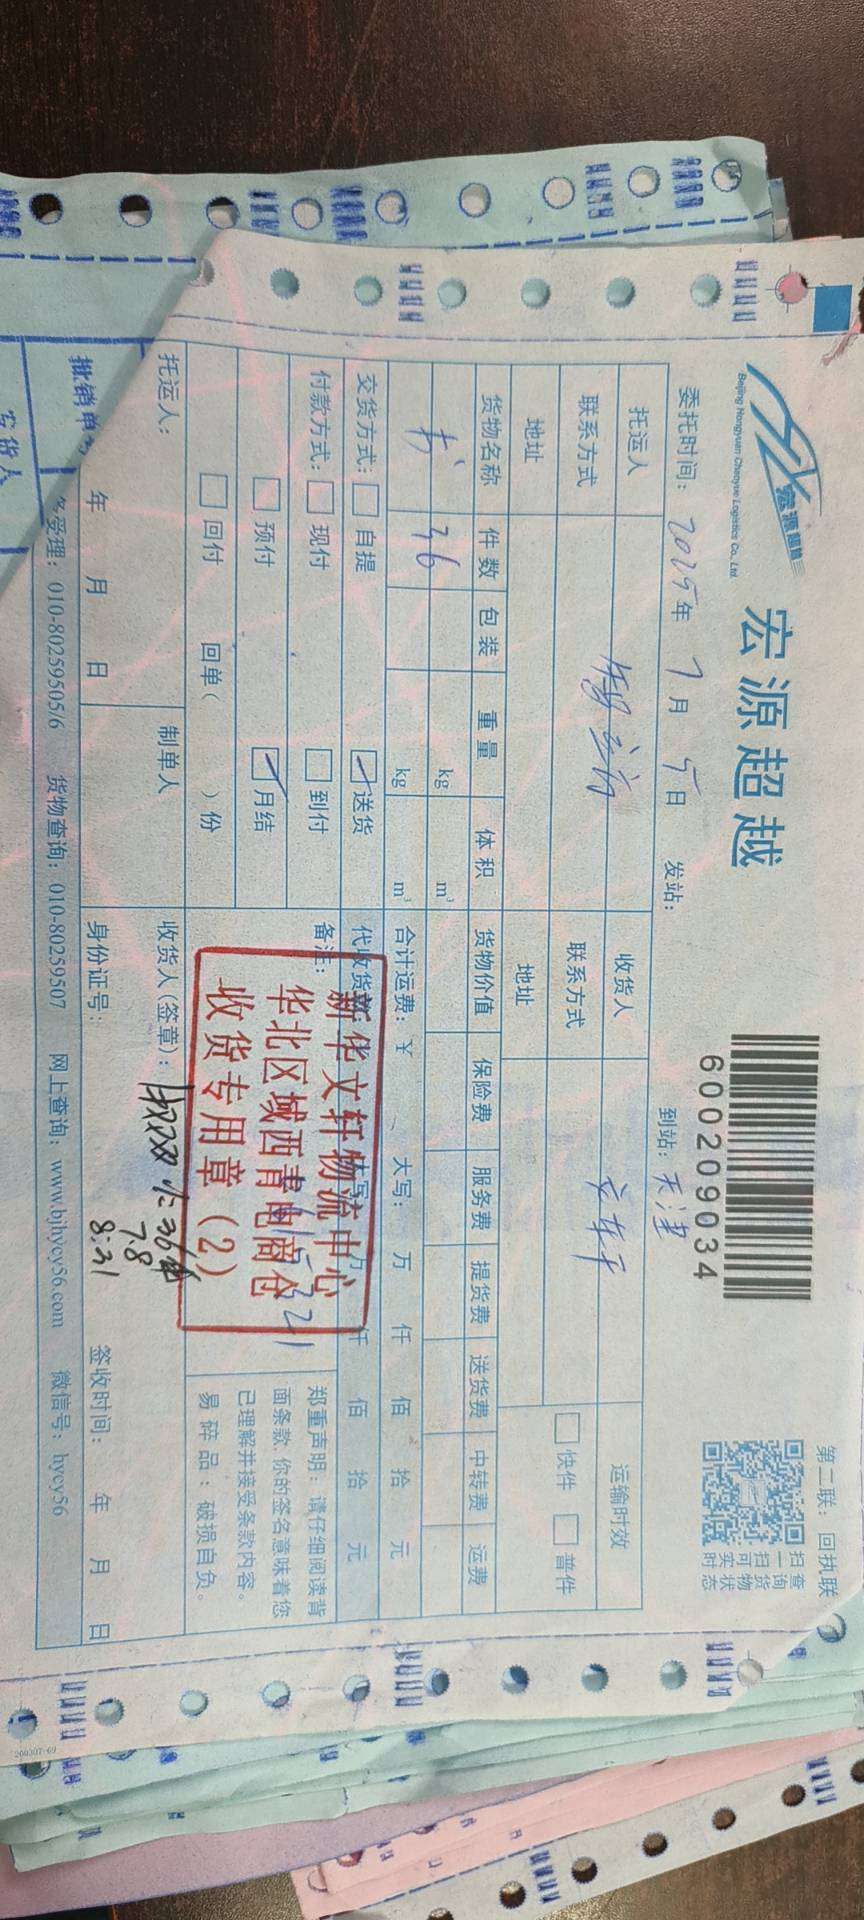 宏源超越
Beijing Hongyuan Chaoyue Logistics Co., Ltd.
宏源超越
600209034
第二联：回执联
扫一扫可实时
查询货物状态
委托时间：2025年7月5日 发站： 到站：天津
托运人 收货人 文轩 运输时效
联系方式 联系方式 快件 普件
地址 地址
货物名称 件数 包装 重量 体积 货物价值 保险费 服务费 提货费 送货费 中转费 运费
书 36 kg m³
kg m³ 合计运费：¥ 大写： 万 仟 佰 拾 元
交货方式： 自提 送货 代收货 万 仟 佰 拾 元
付款方式： 现付 到付 备注：
预付 月结
回付 回单( )份
郑重声明：请仔细阅读背
面条款，你的签名意味着您
已理解并接受条款内容。
易碎品：破损自负。
新华文轩物流中心
华北区域西青电商仓
收货专用章（2）
托运人： 制单人 收货人(签章)： 36
7.8
8:31
年 月 日 身份证号： 签收时间： 年 月 日
务受理：010-80259505/6 货物查询：010-80259507 网上查询：www.bjhycy56.com 微信号：hycy56
批销单
发货人